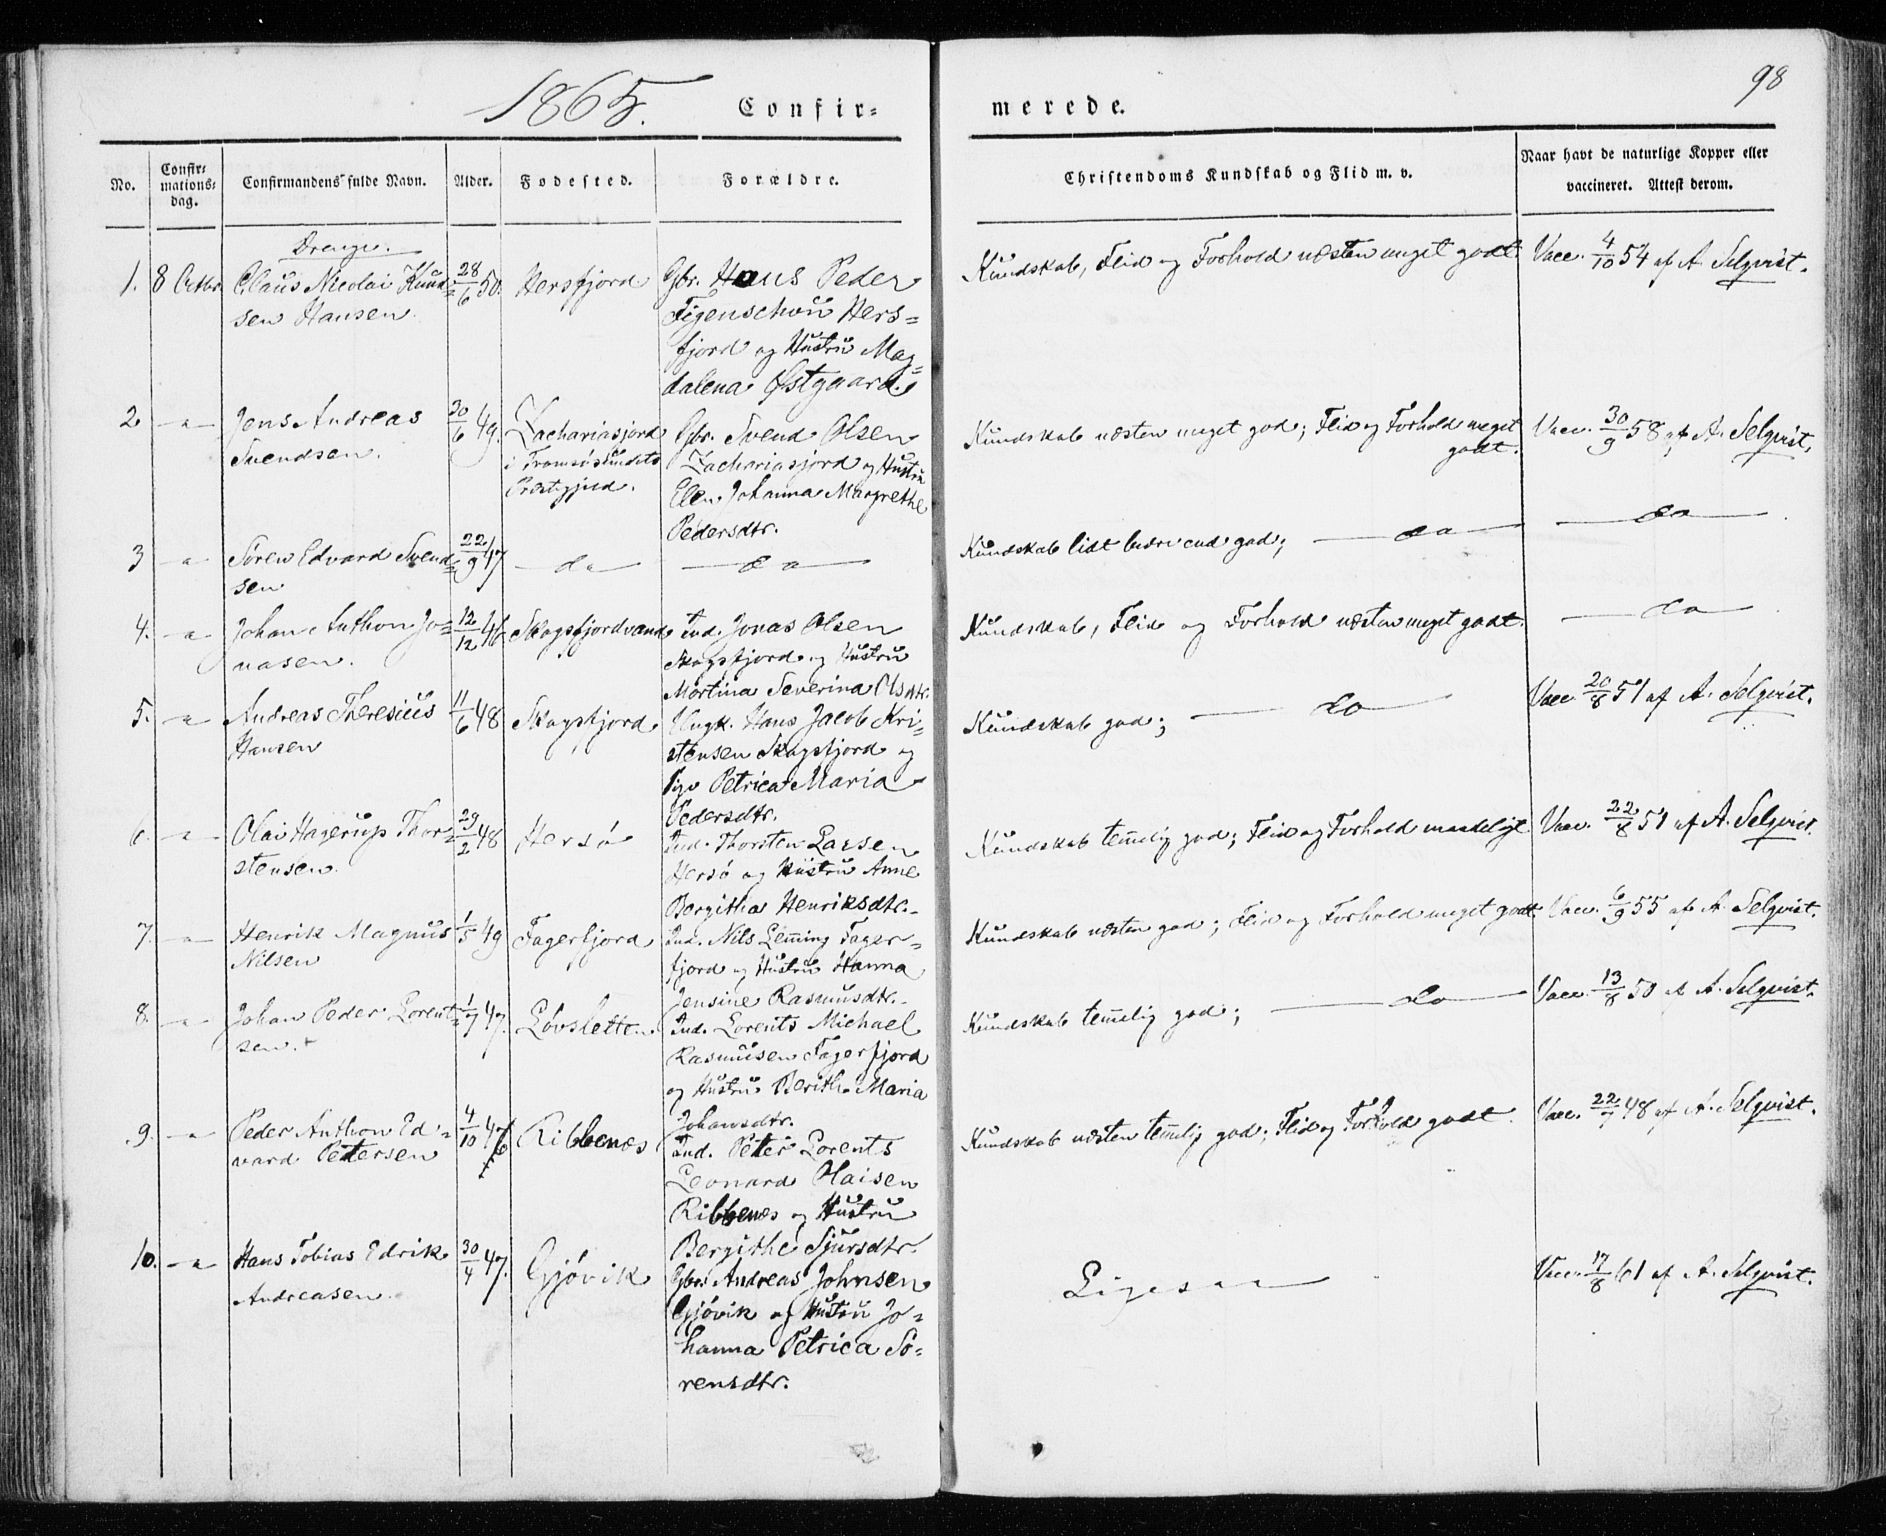 1865.
98
Confir=
merede.
No.
Confir=
mations=
dag.
Confirmandens fulde Navn.
Alder.
Fødested.
Forældre.
Christendoms Kundskab og Flid m. v.
Naar havt de naturlige Kopper eller
vaccineret. Attest derom.
Drenge.
1. 8 Octbr. Claus Nicolai Knud= 28/6 50. Hersfjord Gbr. Hans Peder
sen Hansen. Figenschou Hers=
fjord og Hustru Mag=
dalena Østgaard.
Kundskab, Flid og Forhold næsten meget godt. Vacc. 4/10 54 af A. Selqvist.
2. -"- Jens Andreas 30/6 49. Zachariasjord Gbr. Svend Olsen
Svendsen. i Tromsøsundets Zachariasjord og Hustru
Præstegjeld. Elen Johanna Margrethe
Pedersdtr.
Kundskab næsten meget god; Flid og Forhold meget
godt.
Vacc. 30/9 58 af A. Selqvist.
3 -"- Sören Edvard Svend= 22/9 47 do do
sen
Kundskab lidt bedre end god; do do
4. -"- Johan Anthon Jo= 12/12 46 Skogsfjordvand Ind. Jonas Olsen
nasen. Skogsfjord og Hustru
Martina Severina Olsdtr.
Kundskab, Flid og Forhold næsten meget godt. do
5. -"- Andreas Theresius 11/6 48 Skogsfjord Ungk. Hans Jacob Kri=
Hansen stensen Skogsfjord og
Pige Petrica Maria
Pedersdtr.
Kundskab god; do Vacc. 20/8 51 af A. Selqvist.
6. -"- Olai Hagerup Thor= 29/2 48 Hersö Ind. Thorsten Larsen
stensen. Hersö og Hustru Anne
Bergitha Henriksdtr.
Kundskab temelig god; Flid og Forhold maadeligt. Vacc. 22/8 51 af A. Selqvist.
7. -"- Henrik Magnus 1/5 49 Fagerfjord Ind. Nils Leming Fager=
Nilsen fjord og Hustru Hanna
Jensine Rasmusdtr.
Kundskab næsten god; Flid og Forhold meget godt. Vacc. 6/9 55 af A. Selqvist.
8. -"- Johan Peder Lorent= 1/7 47. Lövsletten Ind. Lorents Michael
sen. Rasmussen Fagerfjord
og Hustru Berith Maria
Johansdtr.
Kundskab temelig god; do Vacc. 13/8 50 af A. Selqvist.
9. -"- Peder Anthon Ed= 4/10 Ribbenæs Ind. Peter Lorents
vard Petersen Leonard Haisen
Ribbenæs og Hustru
Bergithe Sjursdtr.
Kundskab næsten temelig god; Flid og Forhold godt. Vacc. 22/7 48 af A. Selqvist.
10. -"- Hans Tobias Edrik 30/4 47. Gjövik Gbr. Andreas Johnsen
Andreasen. Gjövik og Hustru Jo=
hanna Petrica Sö=
rensdtr.
Ligesaa Vacc. 17/8 61 af A. Selqvist.